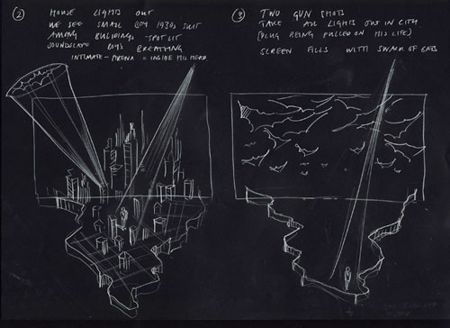 ② HOUSE LIGHTS OUT
WE SEE SMALL BOY 1930s SUIT
AMONG BUILDINGS SPOT LIT
SOUNDSCAPE BOYS BREATHING
INTIMATE - ARENA = INSIDE HIS HEAD
③ TWO GUN SHOTS
TAKE ALL LIGHTS OUT IN CITY
(PLUG BEING PULLED ON HIS LIFE)
SCREEN FILLS WITH SWARM OF BATS